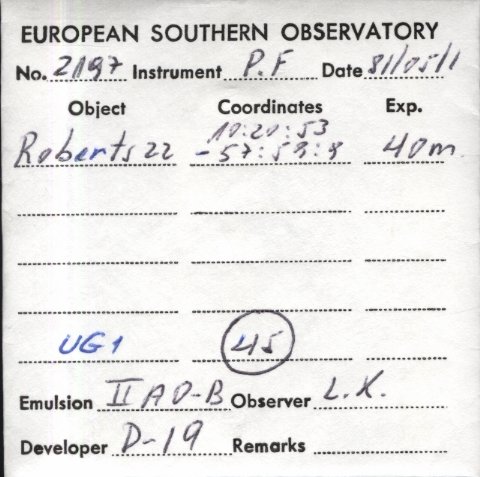 EUROPEAN SOUTHERN OBSERVATORY
No. 2197 Instrument P.F Date 81/05/1
Object Coordinates Exp.
10:20:53
Roberts 22 -57:59:9 40m
UG1 45
Emulsion IIAO-B Observer L.K.
Developer D-19 Remarks